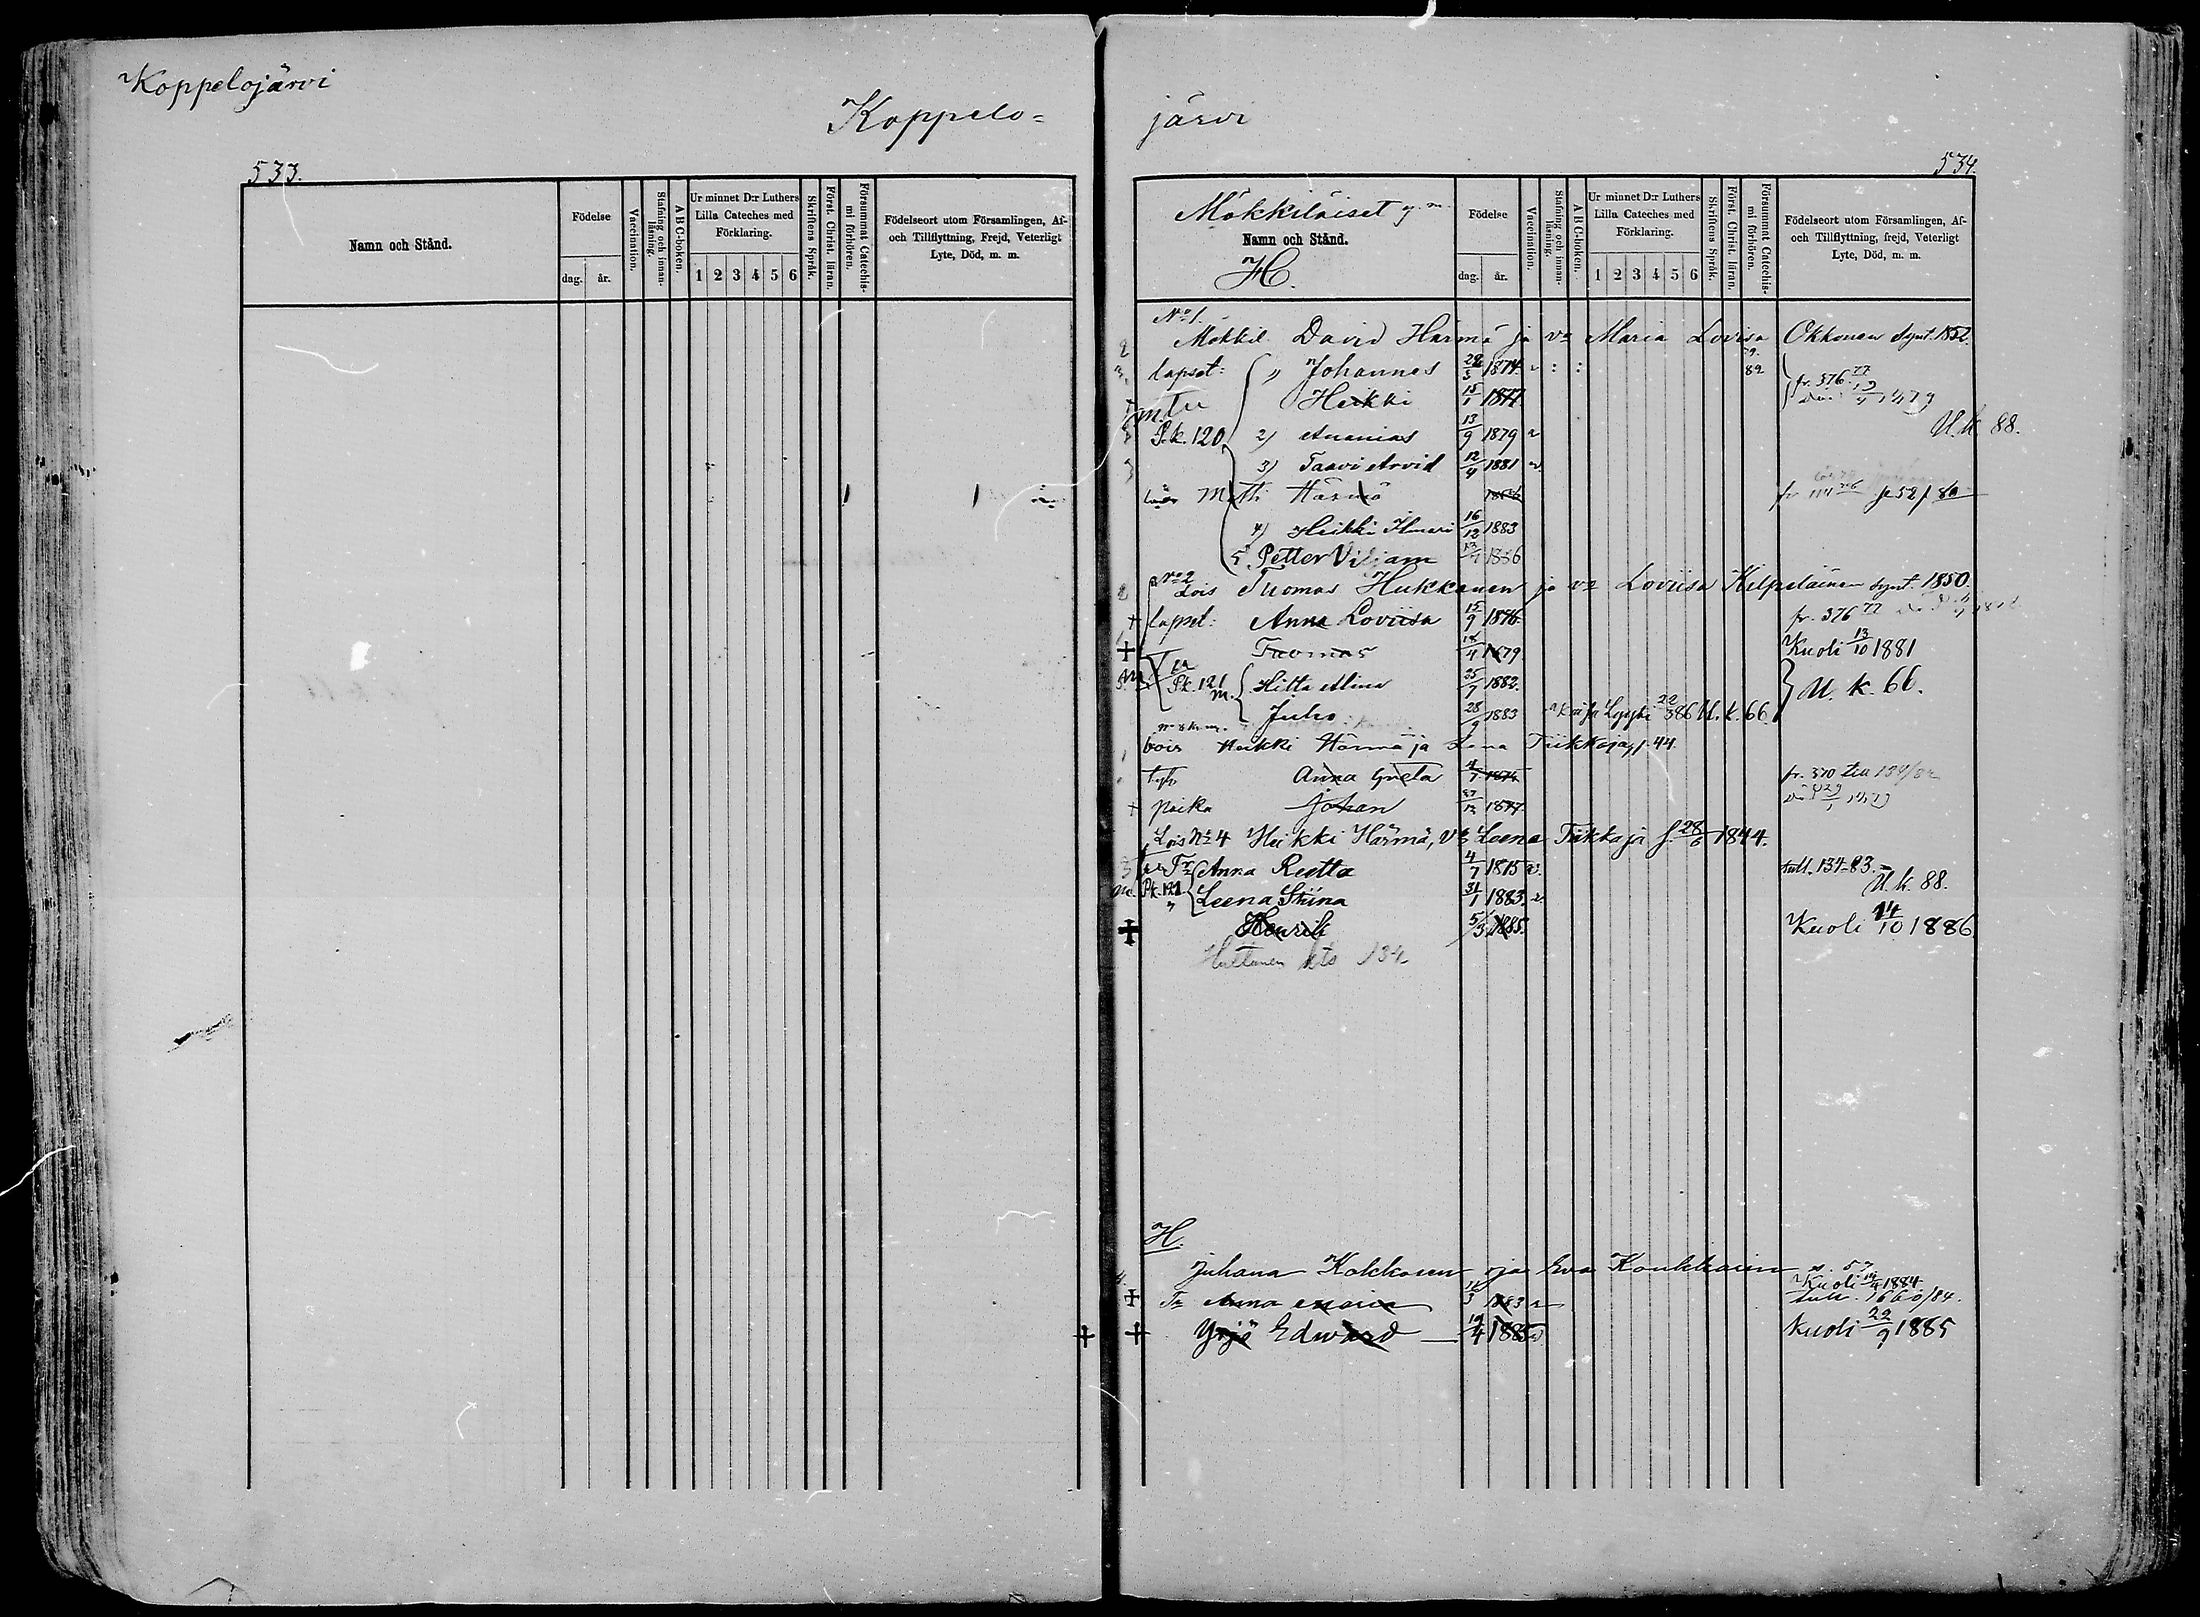 Koppelojärvi
Koppelo= järvi
533.
Namn och Stånd.
Födelse
dag. år.
Vaccination.
Stafning och innanläsning.
A B C-boken.
Ur minnet D:r Luthers Lilla Cateches med Förklaring.
1 2 3 4 5 6
Skriftens Språk.
Först. Christ. läran.
Försummat Catechismi förhören.
Födelseort utom Församlingen, Af- och Tillflyttning, Frejd, Veterligt Lyte, Död, m. m.
534.
Mökkiläiset y. m.
Namn och Stånd.
H.
Födelse
dag. år.
Vaccination.
Stafning och innanläsning.
A B C-boken.
Ur minnet D:r Luthers Lilla Cateches med Förklaring.
1 2 3 4 5 6
Skriftens Språk.
Först. Christ. läran.
Försummat Catechismi förhören.
Födelseort utom Församlingen, Af- och Tillflyttning, frejd, Veterligt Lyte, Död, m. m.
No 1.
Mökkil. David Härmä ja vo Maria Lovisa Okkonen synt. 1852.
lapset: " Johannes 1874 82 fr. 376 77
Heikki 15/1 1877 1879
P.k. 120 2) Ananias 13/9 1879 U.k. 88.
3) Taavi Arvid 12/4 1881
Härmä
4) Heikki Ilmari 16/12 1883
5. Petter Viljam 1886
No 2 Lois Thomas Hukkanen ja vo Loviisa Kilpeläinen synt. 1850.
lapset: Anna Loviisa 15/9 1876 fr. 376 77
Tuomas 18/4 1879 Kuoli 13/10 1881
Pk. 121 Hilta Alina 25/7 1882. U. k. 66.
Juho 28/9 1883 U. k. 66.
Lois Heikki Härmä ja Lena Tiikkaja 44.
tyt. Anna Greta 4/7 1874 fr. 370
poika Johan 27/12 1877
Lois No 4 Heikki Härmä, Vo Leena Tiikkaja s. 28/6 1844.
Tr Anna Reetta 4/7 1875 tull. 134-83.
Pk. 121 Leena Stiina 31/1 1883. U. k. 88.
Henrik 5/3 1885. Kuoli 14/10 1886
Huttunen kts 134
H.
Juhana Kokkonen ja Eva Koukkainen s. 57
Kuoli 1884
Tr Anna Maria 1883
Yrjö Edward 19/4 1885 Kuoli 22/9 1885